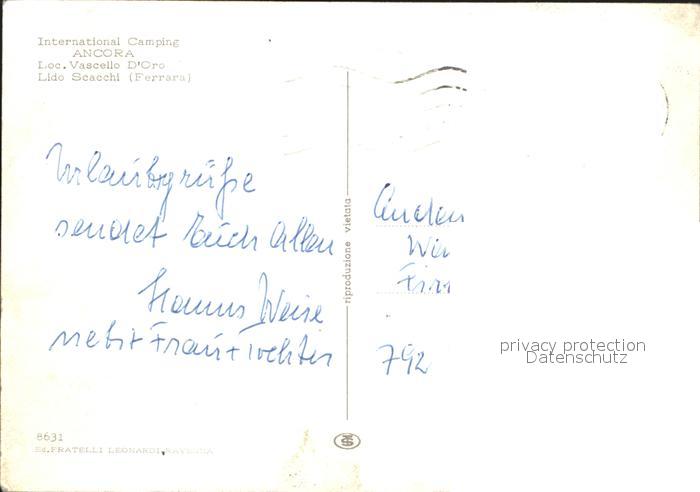 International Camping
ANCORA
Loc. Vascello D'Oro
Lido Scacchi (Ferrara)
Urlaubsgrüße
sendet Euch Allen
Hanns Weise
nebst Frau + Tochter
riproduzione vietata
An den
792
privacy protection
Datenschutz
8631
Ed. FRATELLI LEONARDI RAVENNA